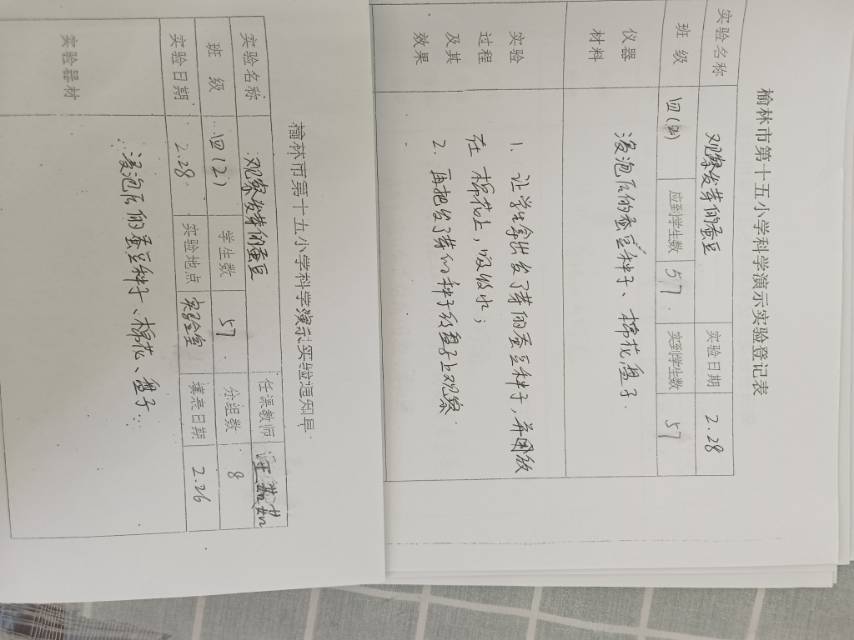 榆林市第十五小学科学演示实验登记表
实验名称 观察发芽的蚕豆 实验日期 2.28
班级 四(2) 应到学生数 57 实到学生数 57
仪器材料 浸泡后的蚕豆种子、棉花,盘子.
实验过程及其效果
1. 让学生拿出发了芽的蚕豆种子,并放
在棉花上,吸饱水;
2. 再把发了芽的种子放盘子上观察
榆林市第十五小学科学演示实验通知单
实验名称 观察发芽的蚕豆 任课教师
班级 四(2) 学生数 57. 分组数 8
实验日期 2.28. 实验地点 实验室 填表日期 2.26
实验器材 浸泡后的蚕豆种子、棉花、盘子...